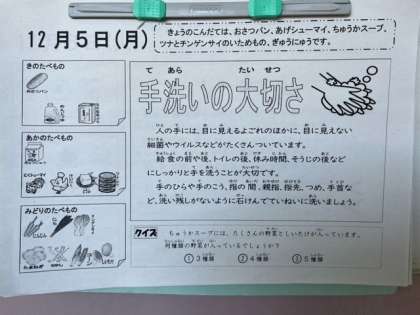 12月5日(月)
きょうのこんだては、おさつパン、あげシューマイ、ちゅうかスープ、
ツナとチンゲンサイのいためもの、ぎゅうにゅうです。
きのたべもの
あかのたべもの
みどりのたべもの
にんじん
て あら たい せつ
手洗いの大切さ
人の手には、目に見えるよごれのほかに、目に見えない
細菌やウイルスなどがたくさんついています。
給食の前や後、トイレの後、休み時間、そうじの後など
にしっかりと手を洗うことが大切です。
手のひらや手のこう、指の間、親指、指先、つめ、手首な
ど、洗い残しがないように石けんでていねいに洗いましょう。
クイズ
ちゅうかスープには、たくさんの野菜としいたけが入っています。
何種類の野菜が入っているでしょうか?
①3種類 ②4種類 ③5種類